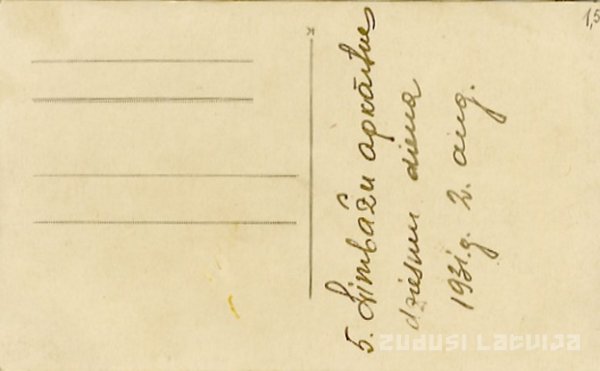 5. Limbažu apkārtnes
dziesmu diena
1931.g. 2. aug.
1,5
ZUDUSI LATVIJA